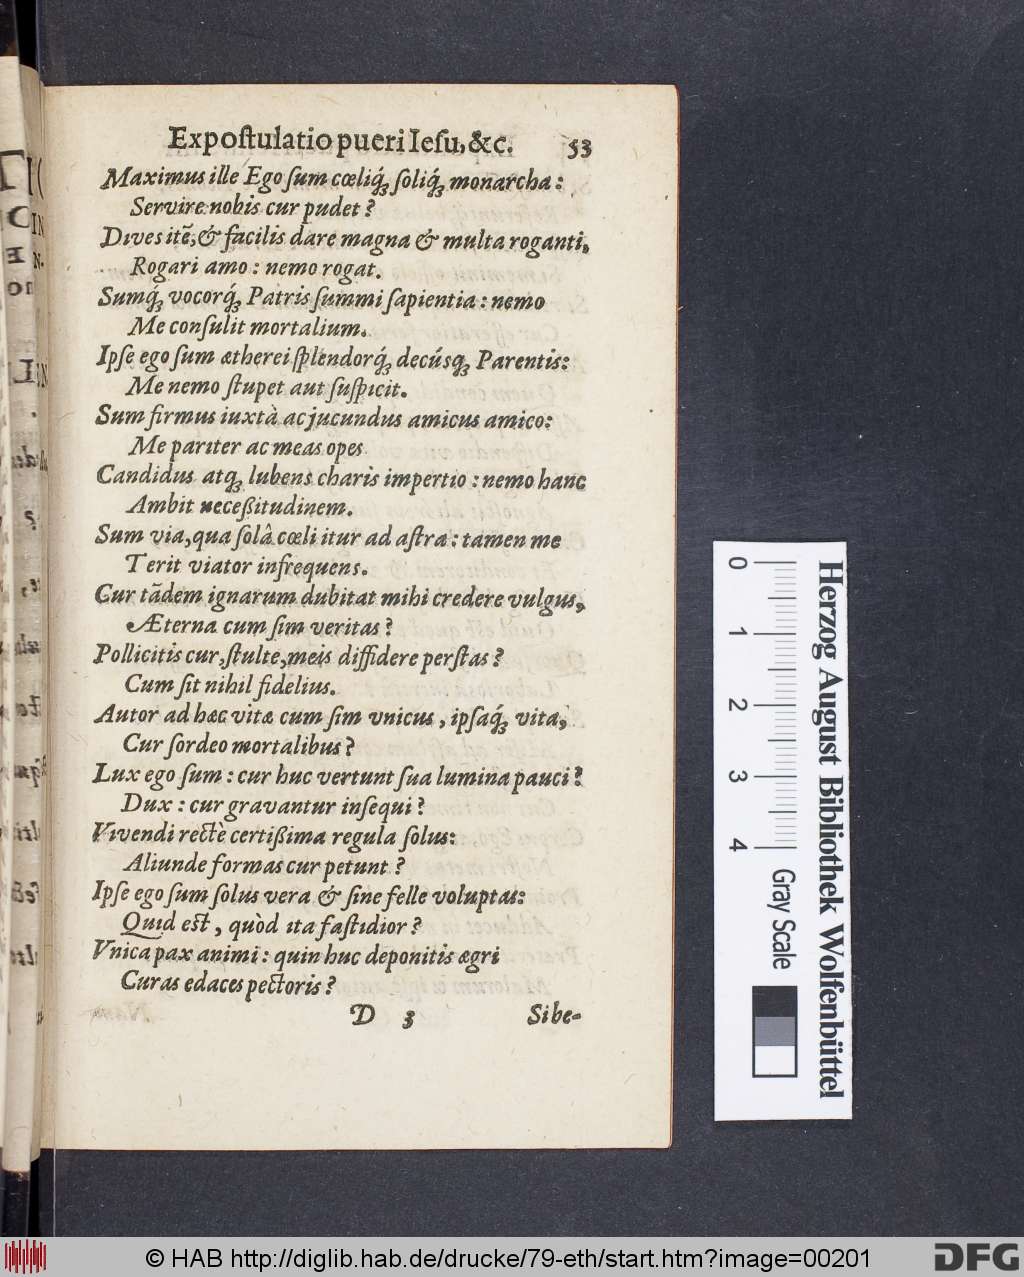 Expoſtulatio pueri Ieſu, &c. 53
Maximus ille Ego ſum cœliq́ꝫ ſoliq́ꝫ monarcha:
Servire nobis cur pudet?
Dives itē, & facilis dare magna & multa roganti,
Rogari amo: nemo rogat.
Sumq́ꝫ vocorq́ꝫ Patris ſummi ſapientia: nemo
Me conſulit mortalium.
Ipſe ego ſum ætherei ſplendorq́ꝫ decúsqꝫ Parentis:
Me nemo ſtupet aut ſuſpicit.
Sum firmus iuxtà ac jucundus amicus amico:
Me pariter ac meas opes
Candidus atqꝫ lubens charis impertio: nemo hanc
Ambit neceßitudinem.
Sum via, qua ſolâ cœli itur ad aſtra: tamen me
Terit viator infrequens.
Cur tādem ignarum dubitat mihi credere vulgus,
Æterna cum ſim veritas?
Pollicitis cur, ſtulte, meis diffidere perſtas?
Cum ſit nihil fidelius.
Autor ad hæc vitæ cum ſim vnicus, ipſaq́ꝫ vita,
Cur ſordeo mortalibus?
Lux ego ſum: cur huc vertunt ſua lumina pauci?
Dux: cur gravantur inſequi?
Vivendi rectè certißima regula ſolus:
Aliunde formas cur petunt?
Ipſe ego ſum ſolus vera & ſine felle voluptas:
Quid eſt, quòd ita faſtidior?
Vnica pax animi: quin huc deponitis ægri
Curas edaces pectoris?
D 3 Sibe-
Herzog August Bibliothek Wolfenbüttel
0 1 2 3 4 Gray Scale
© HAB http://diglib.hab.de/drucke/79-eth/start.htm?image=00201
DFG